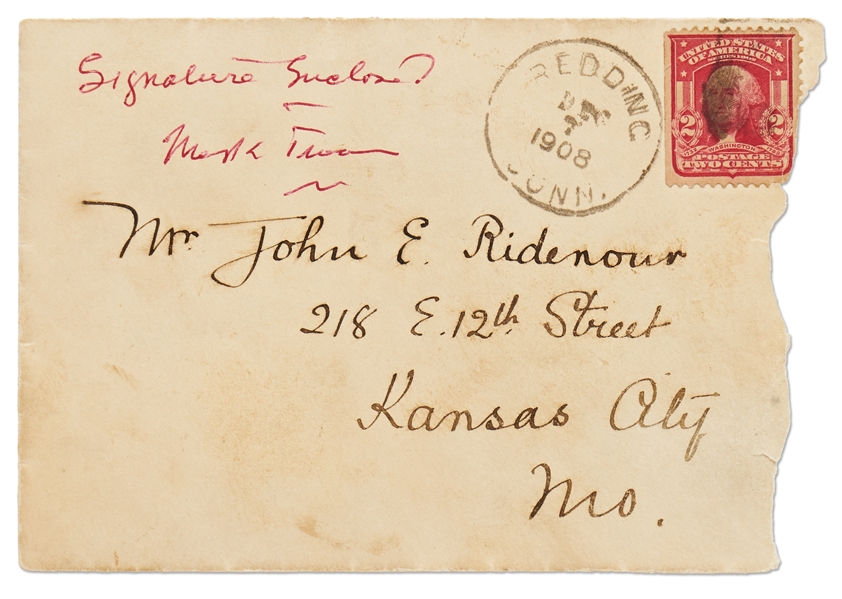 Signature Enclosed
Mark Twain
REDDING
DEC
7
1908
CONN.
UNITED STATES
OF AMERICA
SERIES 1902
2 2
1732 WASHINGTON 1799
POSTAGE
TWO CENTS
Mr John E. Ridenour
218 E. 12th Street
Kansas City
Mo.